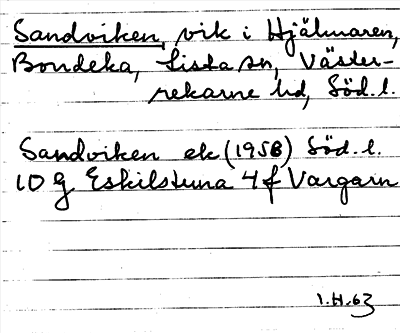 Sandviken, vik i Hjälmaren,
Bondeka, Lista sn, Väster-
rekarne hd, Söd.l.
Sandviken ek (1958) Söd.l.
10 g Eskilstuna 4 f Vargarn
1.H.63